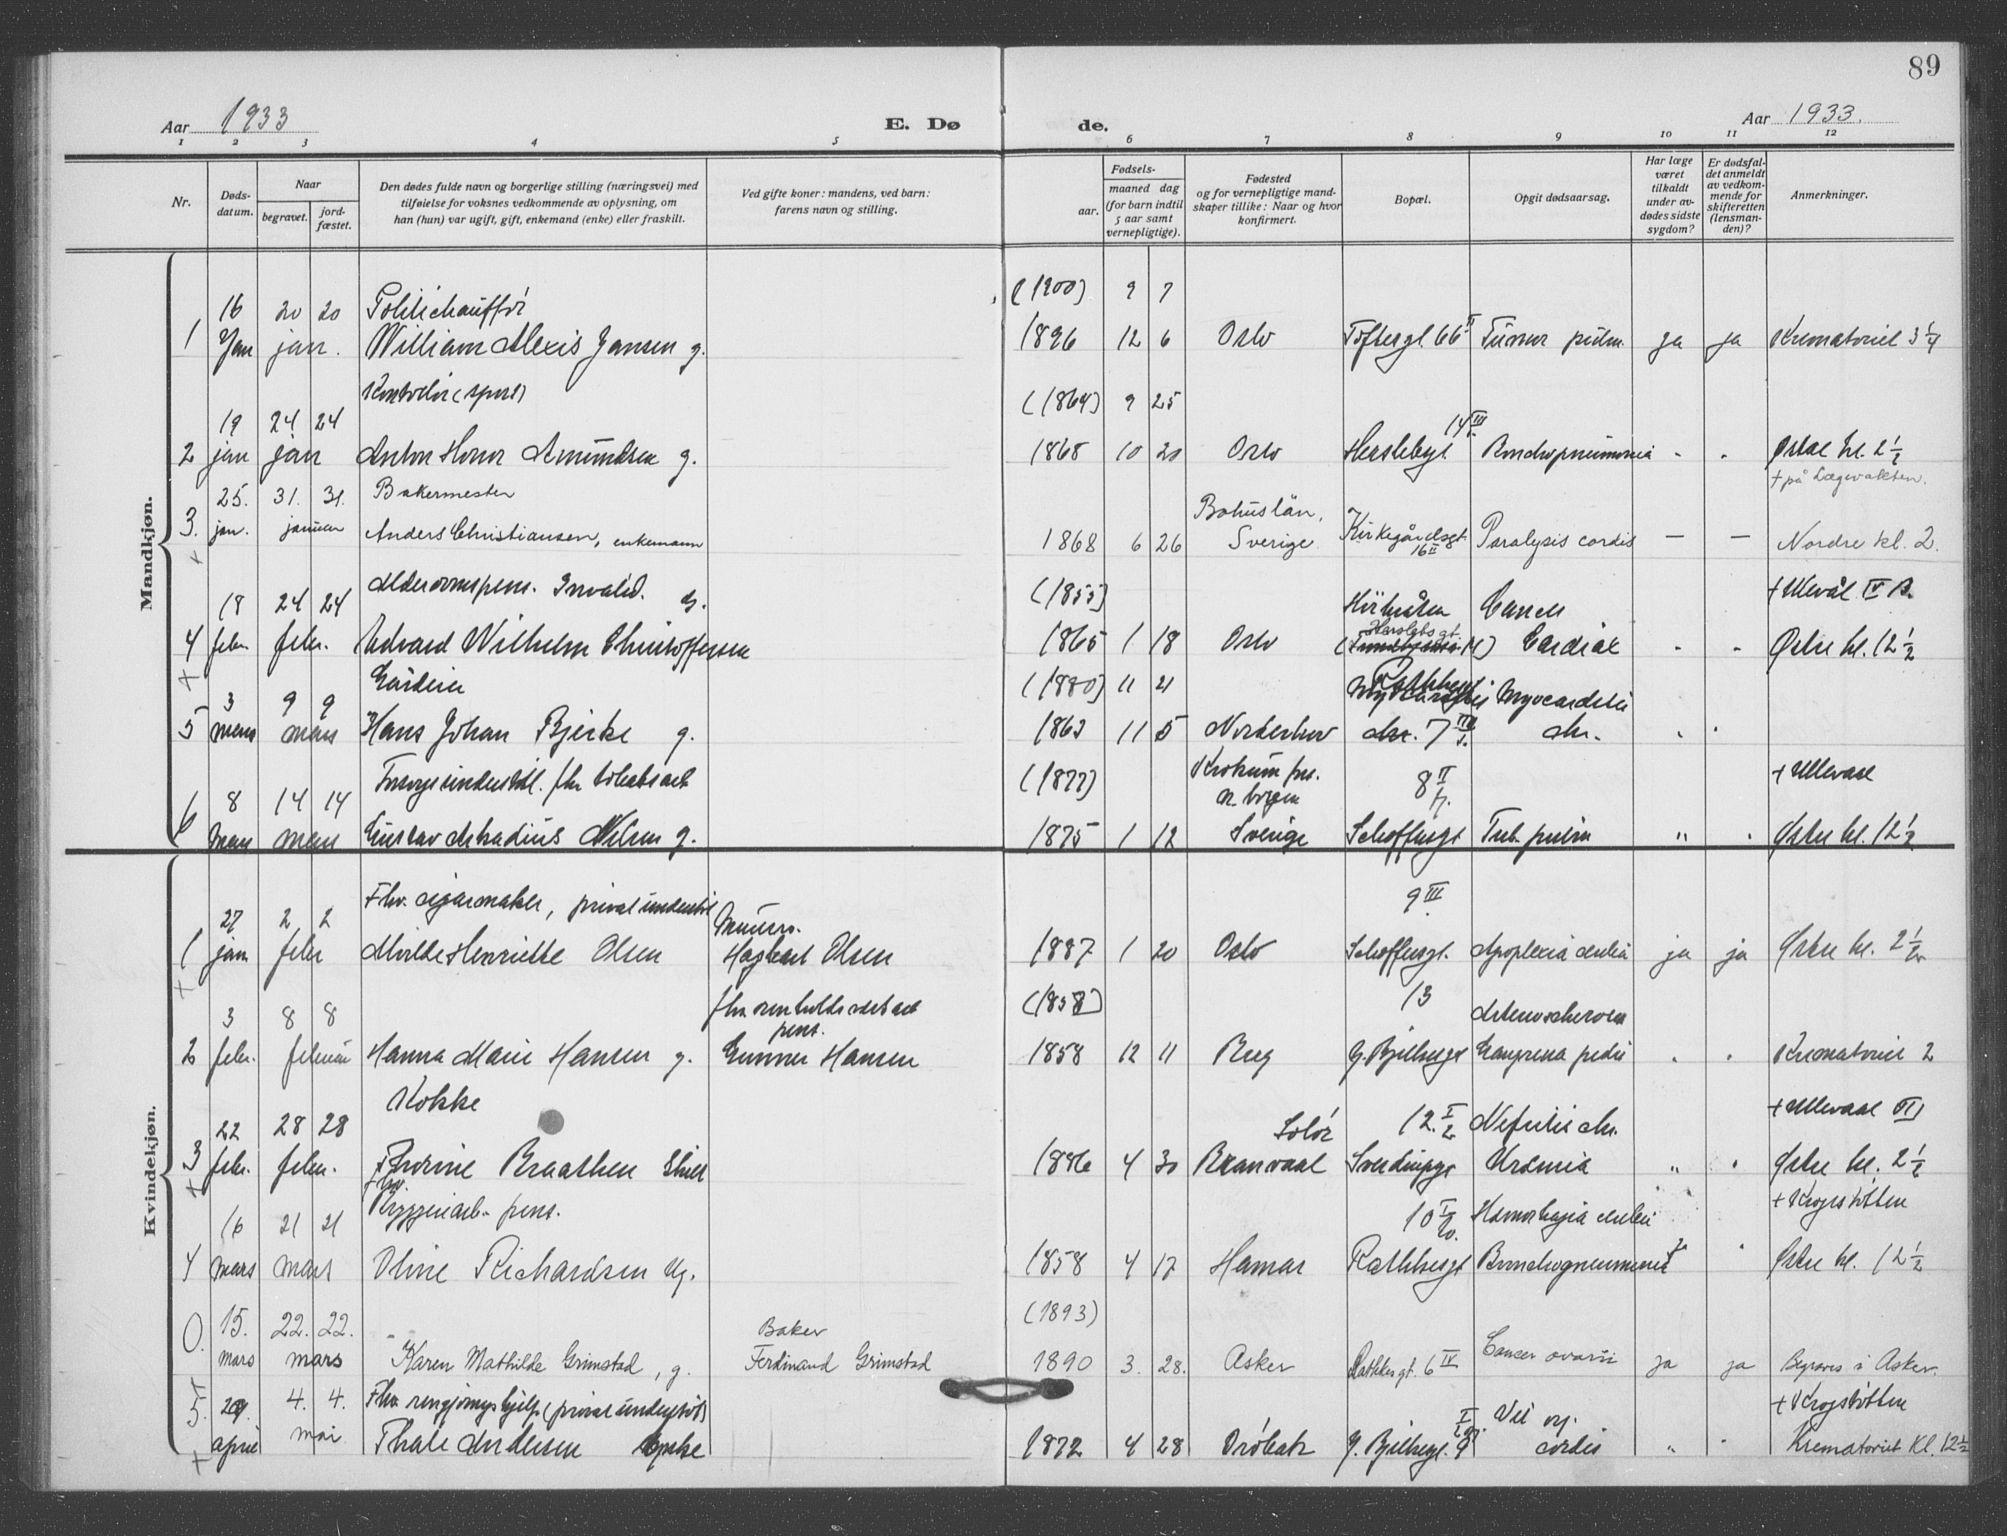 89
Aar 1933
E. Dø
de.
Aar 1933.
1 2 3 4 5 6 7 8 9 10 11 12
Nr.
Døds-
datum.
Naar
begravet.
jord-
fæstet.
Den dødes fulde navn og borgerlige stilling (næringsvei) med
tilføielse for voksnes vedkommende av oplysning, om
han (hun) var ugift, gift, enkemand (enke) eller fraskilt.
Ved gifte koner: mandens, ved barn:
farens navn og stilling.
Fødsels-
aar.
maaned dag
(for barn indtil
5 aar samt
vernepligtige).
Fødested
og for vernepligtige mand-
skaper tillike: Naar og hvor
konfirmert.
Bopæl.
Opgit dødsaarsag.
Har læge
været
tilkaldt
under av-
dødes sidste
sygdom?
Er dødsfal-
det anmeldt
av vedkom-
mende for
skifteretten
(lensman-
den)?
Anmerkninger.
Mandkjøn.
16 20 20 Politichauffør (1900) 9 7
1 Jan jan. William Alexis Jansen g. 1896 12 6 Oslo Toftesgt. 66 II Tumor pulm. ja ja Krematoriet 3 1/4
(1864) 9 25
19 24 24 14 III
2 jan jan Anton Amundsen g. 1865 10 20 Oslo Herslebsgt. Bronchopneumonia " " Østre kl. 2 1/2
+ på Lægevakten.
25. 31. 31. Bakermester Bohuslän,
3. jan. januar Anders Christiansen, enkemann 1868 6 26 Sverige Kirkegårdsgt. 16 II Paralysis cordis — — Nordre kl. 2.
+
18 24 24 Alderdomspens. Invalid. g. (1855) Cancer + Ullevål IV B.
4 febr. febr. Edvard Wilhelm Christoffersen 1865 1 18 Oslo Cardiae " " Østre kl. 12 1/2
+
3 9 9 (1880) 11 21 Rathkesgt Myocarditis
5 mars mars Hans Johan Bjerke g. 1863 11 5 Norderhov 7 III chr. " "
8 14 14 (1877) 8 II + Ullevaal
6 mars mars Gustav Nilsen g. 1875 1 12 Sverige Schoffusgt Tub. pulm " " Østre kl. 12 1/2
Kvindekjøn.
27 2 2 Fhv. cigarmaker, privat understøt Murer. 9 III
1 jan febr Henriette Olsen Hagbart Olsen 1887 1 20 Oslo Schoffusgt. Apoplexia cerebri ja ja Østre kl. 2 1/2
+
3 8 8 fhv. renholdsarbeid pens. (1858) 13
2 febr. februar Hanna Marie Hansen g. Gunner Hansen 1858 12 11 Berg G. Bjellesgt Gangrena pedis " " Krematoriet 2
22 28 28 Kokke Solør 12. I Nefritis chr. + Ullevaal VI
3 febr. febr. Thorine Braathen Skilt 1886 4 30 Branvaal Sverdrupsgt Uremia " " Østre kl. 2 1/2
+
16 21 21 Fhv. Bryggeriarb. pens. 10 I Hæmorhagia cerebri + Krogstøtten
4 mars mars Oline Richardsen Ug. 1858 4 17 Hamar Rathkesgt Bronchopneumonia " Østre kl. 12 1/2
15. 22. 22. Baker (1893)
0. mars mars Karen Mathilde Grimstad, g. Ferdinand Grimstad 1890 3. 28. Asker Rathkesgt. 6 IV Cancer ovarii ja ja Begraves i Asker.
29. 4. 4. Fhv. rengjøringshjelp (privat understøt) Vit. org. + Krogstøtten
5. april mai Thale Andersen 1872 4 28 Drøbak G. Bjellesgt. 9 I cordis " " Krematoriet Kl. 12 1/2
+